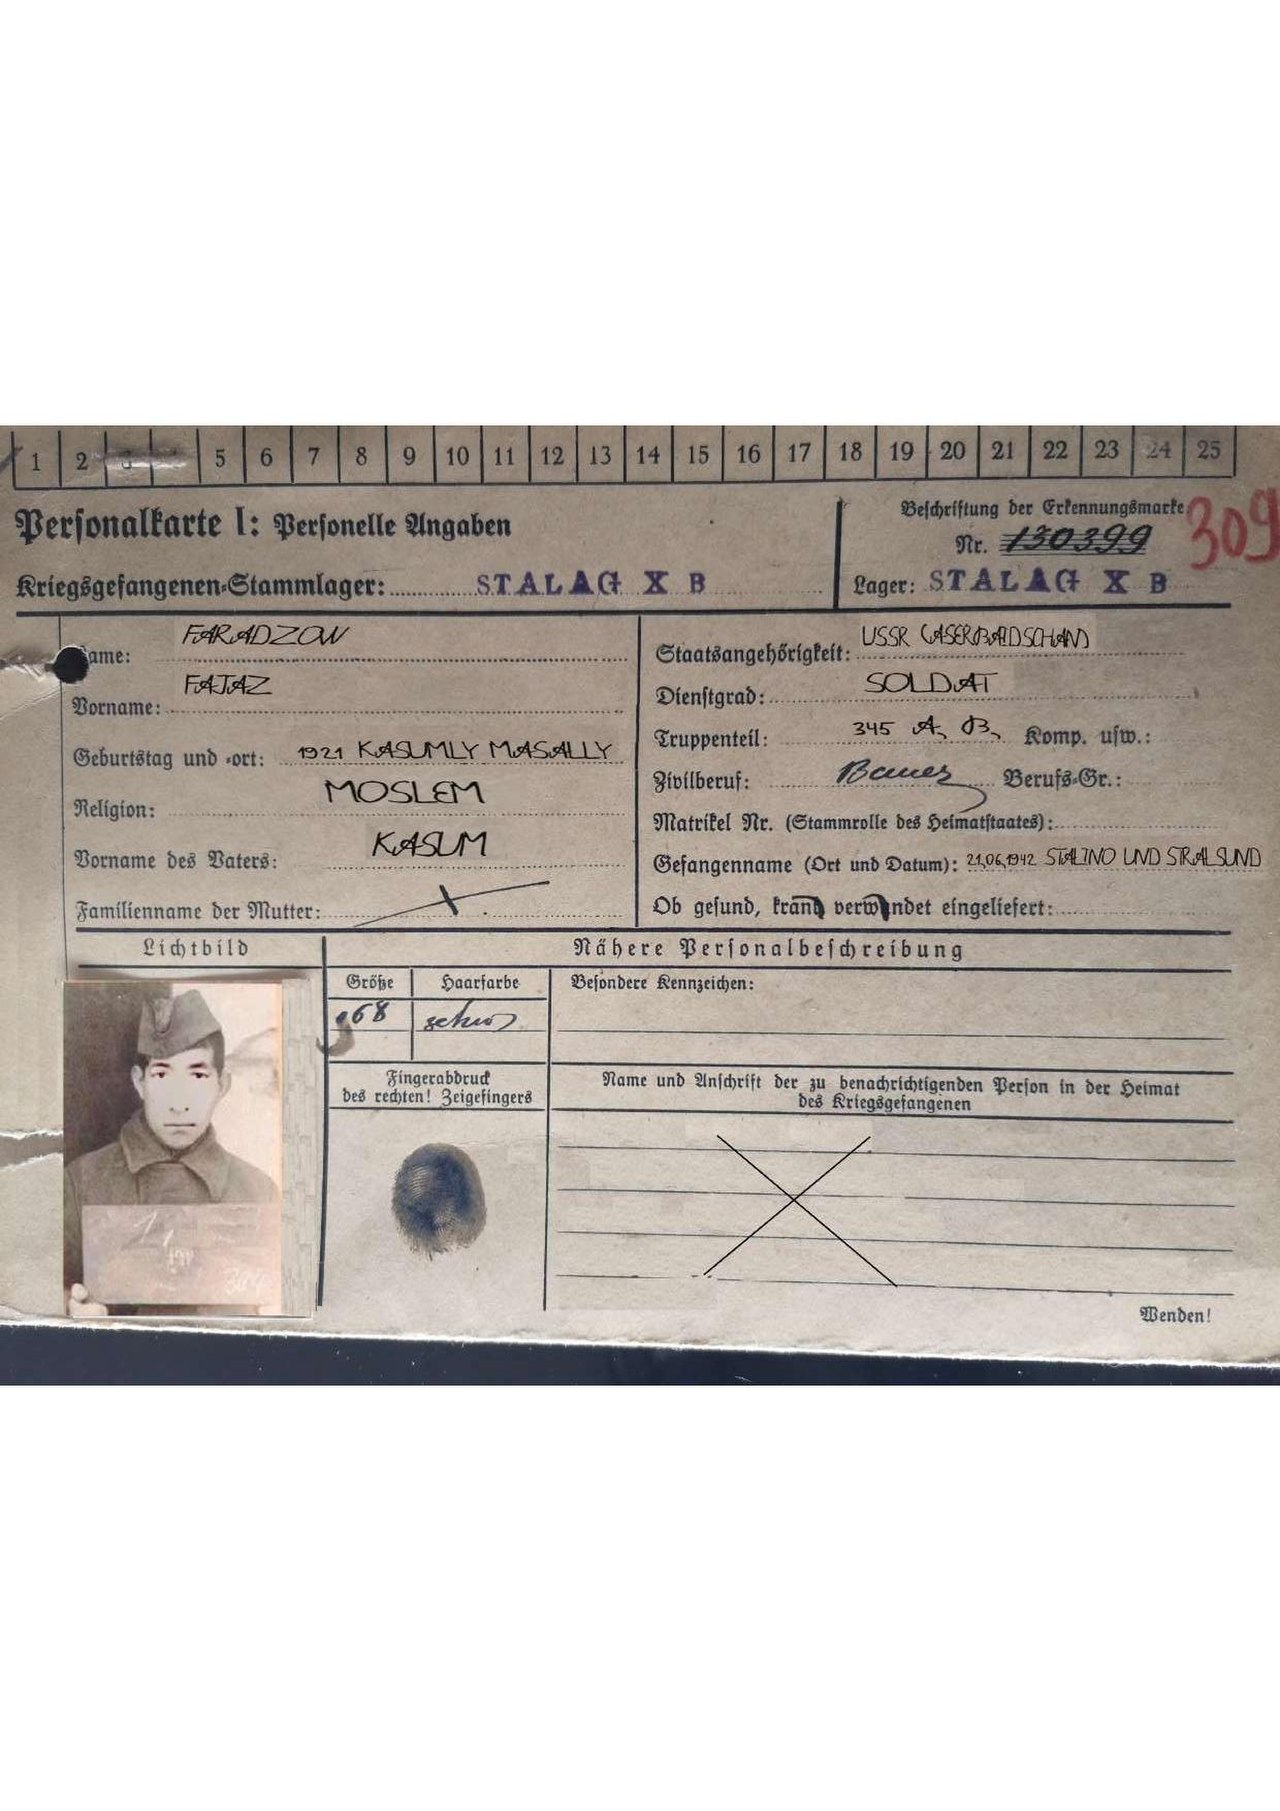 1 2 3 4 5 6 7 8 9 10 11 12 13 14 15 16 17 18 19 20 21 22 23 24 25
Personalkarte I: Personelle Angaben
Beschriftung der Erkennungsmarke
Nr. 130399
309
Kriegsgefangenen-Stammlager: STALAG X B
Lager: STALAG X B
Name: FARADZOW
Vorname: FAJAZ
Geburtstag und -ort: 1921 KASUMLY MASALLY
Religion: MOSLEM
Vorname des Vaters: KASUM
Familienname der Mutter:
Staatsangehörigkeit: USSR (ASERBAIDSCHAN)
Dienstgrad: SOLDAT
Truppenteil: 345 A. B. Komp. usw.:
Zivilberuf: Bauer Berufs-Gr.:
Matrikel Nr. (Stammrolle des Heimatstaates):
Gefangenname (Ort und Datum): 21.06.1942 STALINO UND STRALSUND
Ob gesund, krank, verwundet eingeliefert:
Lichtbild
Nähere Personalbeschreibung
Größe
Haarfarbe
Besondere Kennzeichen:
168
schwarz
Fingerabdruck
des rechten! Zeigefingers
Name und Anschrift der zu benachrichtigenden Person in der Heimat
des Kriegsgefangenen
Wenden!